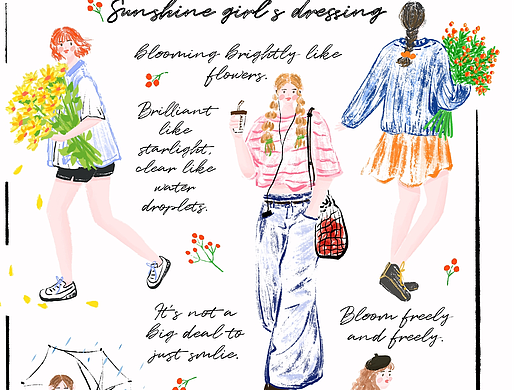 Sunshine girl's dressing
Blooming Brightly like
flowers.
Brilliant
like
starlight,
clear like
water
droplets.
It's not a
Big deal to
just smlie.
Bloom freely
and freely.